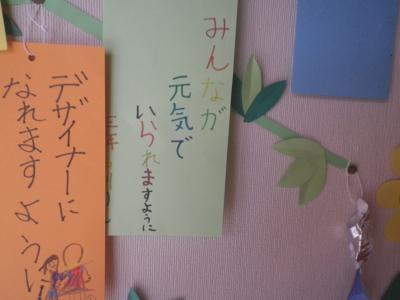 みんなが
元気で
いられますように
デザイナーに
なれますように